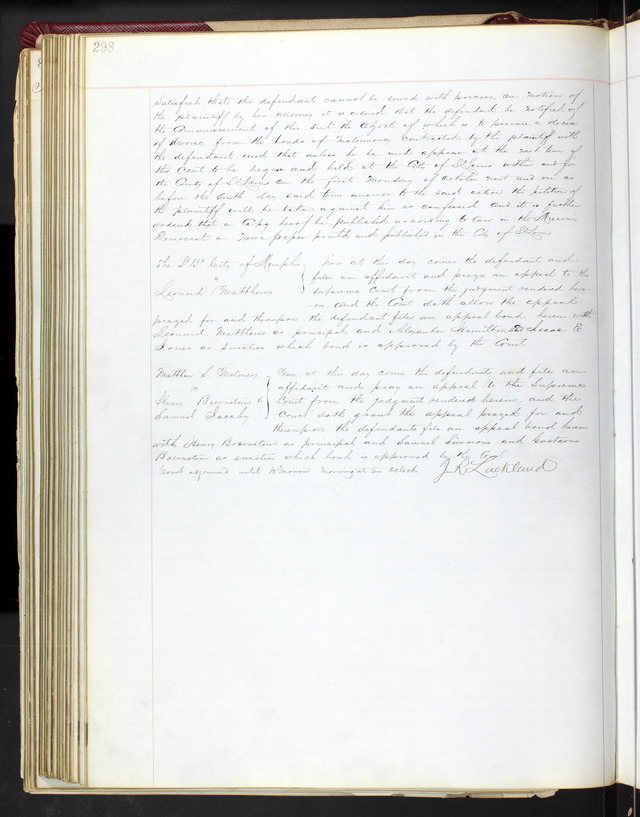 298
Satisfied that the defendant cannot be served with process, on motion of
the plaintiff by her attorney it is ordered that the defendant be notified of
the commencement of this suit the object of which is to procure a decree
of divorce from the bonds of Matrimony contracted by the plaintiff with
the defendant and that unless he be and appear at the next term of
this Court to be begun and held at the City of St Louis within and for
the County of St Louis on the first Monday of October next and on or
before the sixth day said term answer to the said action the petition of
the plaintiff will be taken against him as confessed and it is further
ordered that a copy hereof be published according to law in the Missouri
Democrat a News paper printed and published in the City of St Louis
The St Bt City of Memphis } Now at this day comes the defendant and
vs files an affidavit and prays an appeal to the
Leonard Matthews supreme Court from the judgment rendered here-
in and the Court doth allow the appeal
prayed for and thereupon the defendant files an appeal bond herein with
Leonard Matthews as principal and Alexander Hamilton and Isaac E
Jones as sureties which bond is approved by the Court
Matthew S. } Now at this day come the defendants and file an
vs affidavit and pray an appeal to the Supreme
Henry Boernstein & Court from the judgment rendered herein, and the
Samuel Jacoby Court doth grant the appeal prayed for and
thereupon the defendants file an appeal bond herein
with Henry Boernstein as principal and Samuel Simmons and Gustavus
Boernstein as sureties which bond is approved by the Court
Court adjourned until tomorrow morning at ten oclock J R Lackland